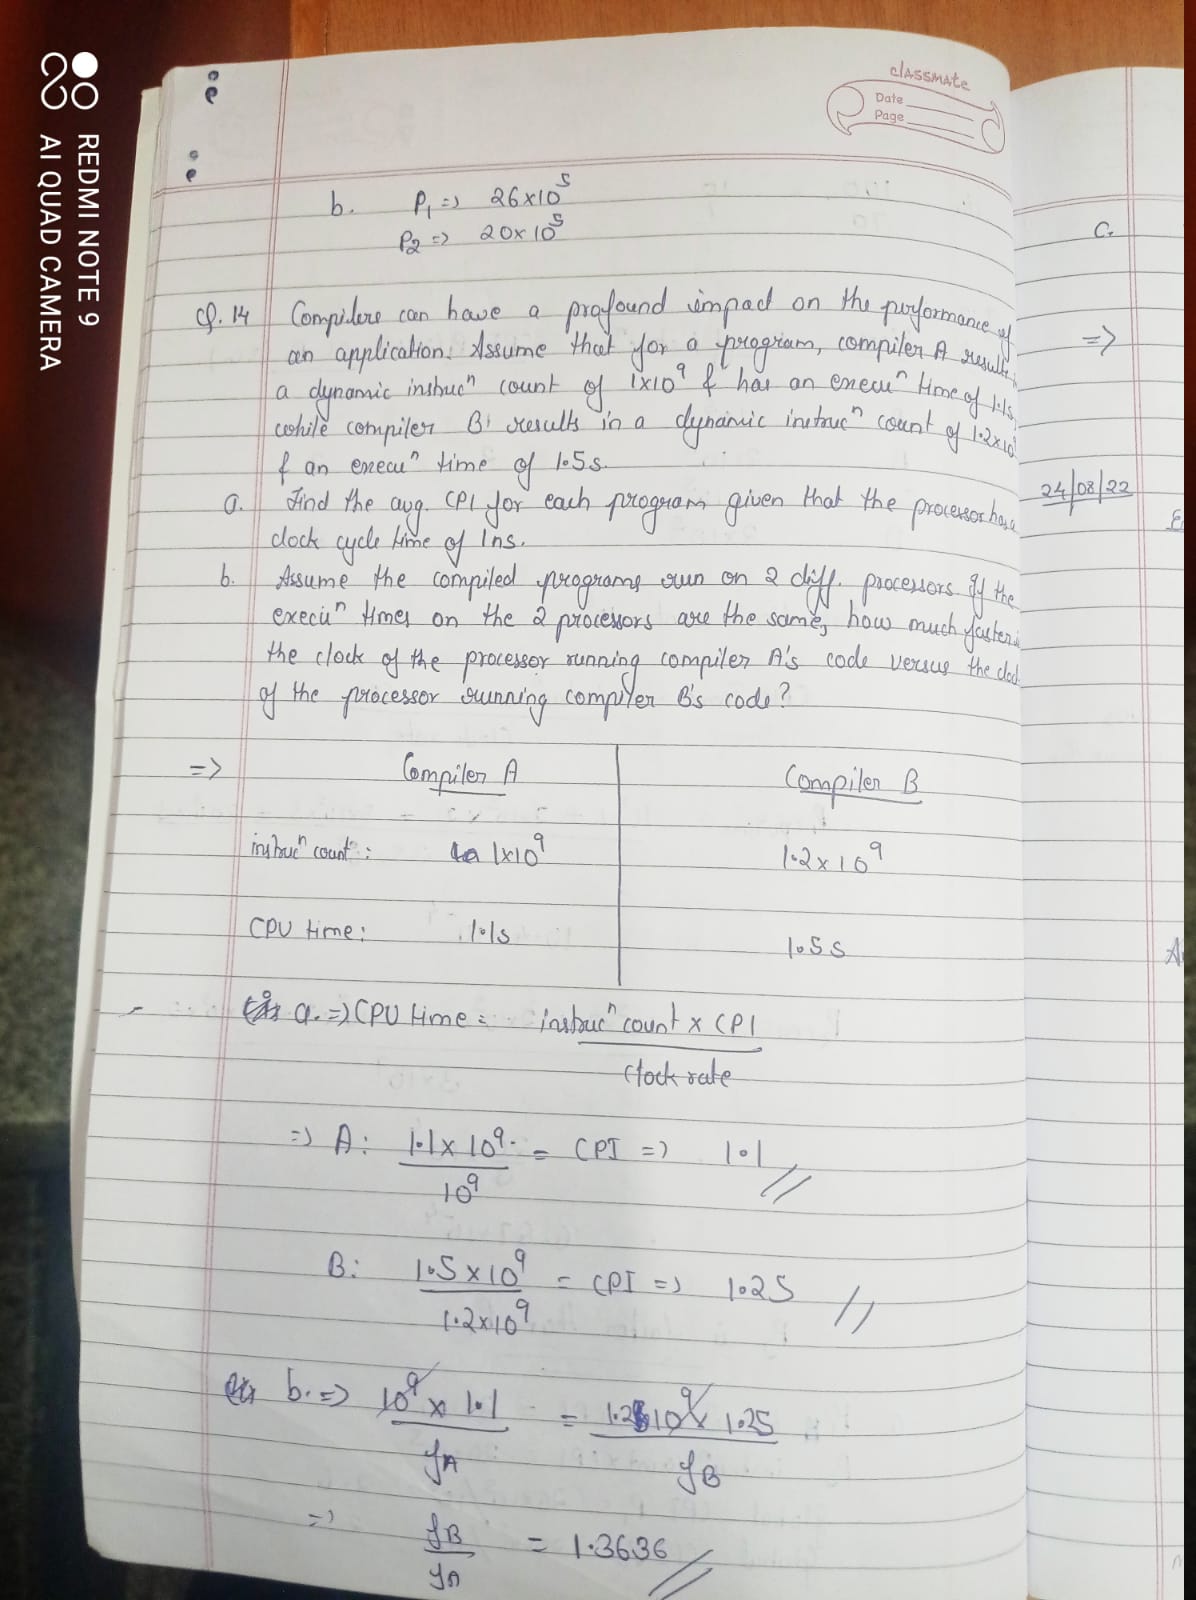 REDMI NOTE 9
AI QUAD CAMERA
classmate
Date
Page
b. P1 => 26x10^5
P2 => 20x10^5
Q.14 Compilers can have a profound impact on the performance of
an application. Assume that for a program, compiler A results
a dynamic instrucⁿ count of 1x10^9 & has an execuⁿ time of 1.1s,
while compiler B results in a dynamic instrucⁿ count of 1.2x10
& an execuⁿ time of 1.5s.
a. Find the avg. CPI for each program given that the processor has a
clock cycle time of 1ns.
b. Assume the compiled programs run on 2 diff. processors. If the
execuⁿ times on the 2 processors are the same, how much faster is
the clock of the processor running compiler A's code versus the cloc
of the processor running compiler B's code?
=> Compiler A Compiler B
instrucⁿ count: 1x10^9 1.2x10^9
CPU time: 1.1s 1.5s
a. => CPU time = instrucⁿ count x CPI
clock rate
=> A: 1.1x10^9 = CPI => 1.1
10^9
B: 1.5x10^9 = CPI => 1.25
1.2x10^9
b. => 10^9 x 1.1 = 1.2 10^9 x 1.25
fA fB
=> fB = 1.3636
fA
C.
=>
24/08/22